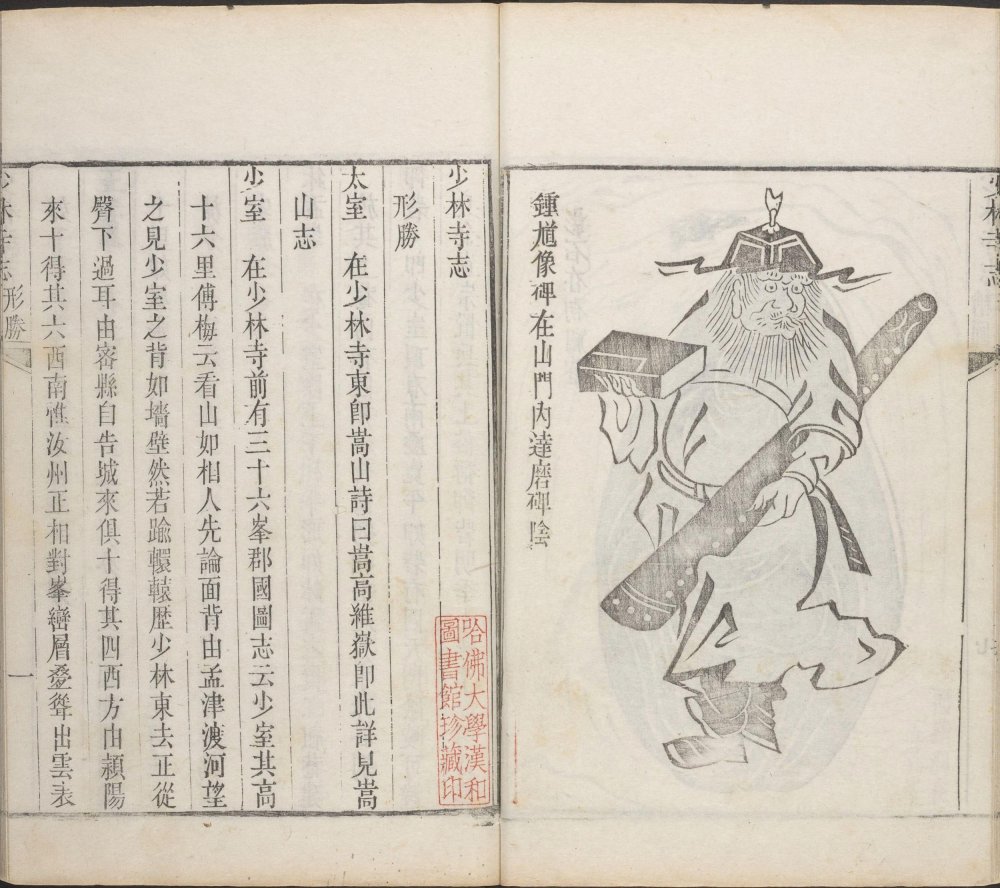 少林寺志
鍾馗像碑在山門內達磨碑陰
少林寺志
形勝
太室　在少林寺東卽嵩山詩曰嵩高維嶽卽此詳見嵩
山志
少室　在少林寺前有三十六峯郡國圖志云少室其高
十六里傅梅云看山如相人先論面背由孟津渡河望
之見少室之背如墻壁然若踰轘轅歷少林東去正從
臀下過耳由密縣自告城來俱十得其四西方由潁陽
來十得其六西南惟汝州正相對峯巒層叠聳出雲表
少林寺志　形勝　一
哈佛大學漢和
圖書館珍藏印